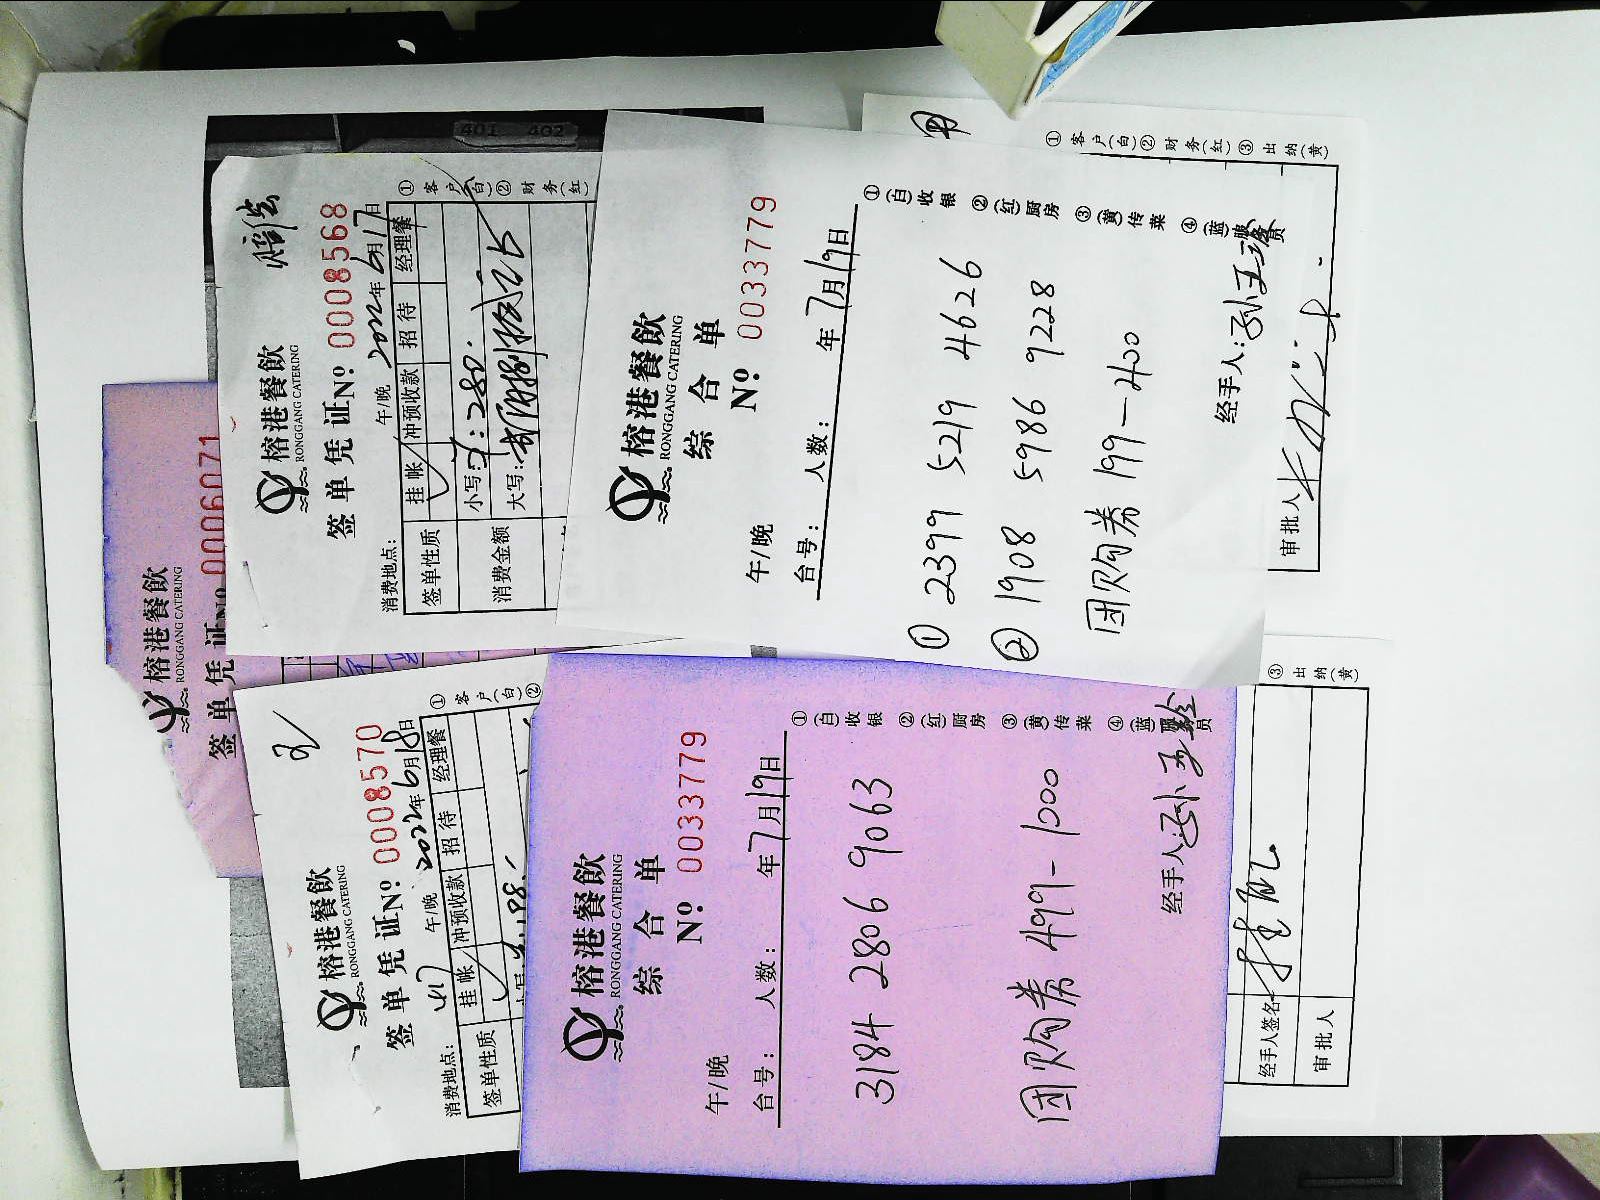 401 402
榕港餐飲
RONGGANG CATERING
签单凭证№ 0006071
榕港餐飲
RONGGANG CATERING
签单凭证№ 0008568
消费地点： 午/晚 2022年6月17日
签单性质 挂帐 冲预收款 招待 经理餐
消费金额 小写：¥：280.
大写：
①客户(白)②财务(红)
榕港餐飲
RONGGANG CATERING
综合单
№: 0033779
午/晚
台号： 人数： 年7月19日
① 2399 5219 4626
② 1908 5986 9228
团购券 199-400
经手人：孙玉玲
①(白)收银 ②(红)厨房 ③(黄)传菜 ④(蓝)服务员
审批人
①客户(白)②财务(红)③出纳(黄)
榕港餐飲
RONGGANG CATERING
签单凭证№: 0008570
消费地点： 午/晚 2022年6月18日
签单性质 挂帐 冲预收款 招待 经理餐
198.
①客户(白)②
榕港餐飲
RONGGANG CATERING
综合单
№: 0033779
午/晚
台号： 人数： 年7月19日
3184 2806 9063
团购券 499-1000
经手人：孙玉玲
①(白)收银 ②(红)厨房 ③(黄)传菜 ④(蓝)服务员
经手人签名
审批人
③出纳(黄)